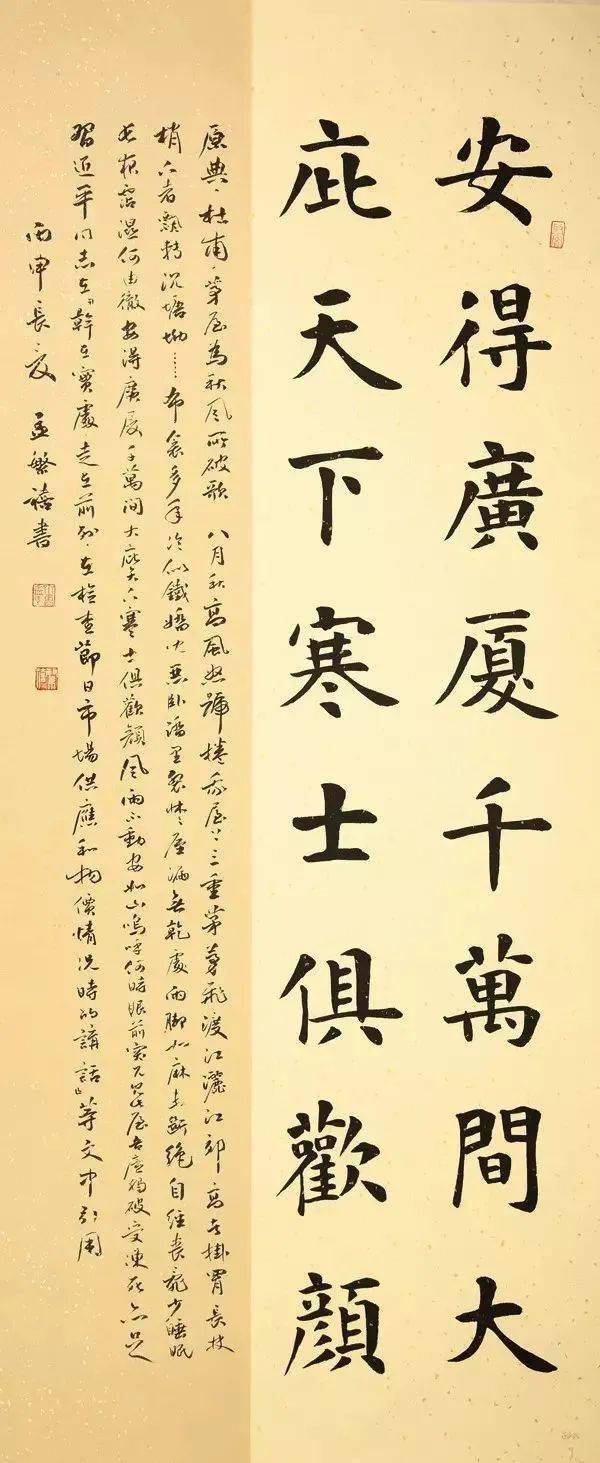 安得廣厦千萬間大
庇天下寒士俱歡顔
原典：杜甫《茅屋為秋風所破歌》 八月秋高風怒號捲我屋上三重茅茅飛渡江灑江郊高者掛罥長林
梢下者飄轉沉塘坳……布衾多年冷似鐵嬌兒惡卧踏里裂牀牀屋漏無乾處雨脚如麻未斷絶自經喪亂少睡眠
長夜霑濕何由徹安得廣厦千萬間大庇天下寒士俱歡顔風雨不動安如山嗚呼何時眼前突兀見此屋吾廬獨破受凍死亦足
習近平同志在《幹在實處走在前列·在檢查節日市場供應和物價情况時的講話》等文中引用
丙申長夏 孟繁禧書